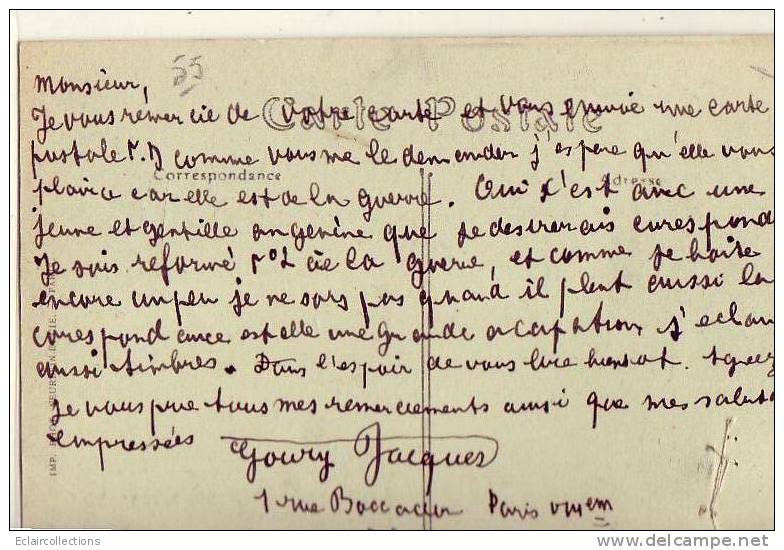 55
Monsieur,
Je vous remercie de votre carte et vous envoie une carte
Carte Postale
postale r.v comme vous me le demander j'espere qu'elle vous
Correspondance
Adresse
plaira car elle est de la guerre. Oui c'est avec une
jeune et gentille que je desirerais corespond
Je suis reformé de la guerre, et comme je boite
encore un peu je ne sors pas quand il pleut aussi la
corespondance est elle une grande occupation j'echan
aussi timbres. Dans l'espoir de vous lire bientot. Agreez
je vous prie tous mes remerciements ainsi que mes saluta
empressées
Goury Jacques
1 rue Boccador Paris VIIIem
IMP.
Eclaircollections
http://www.delcampe.net